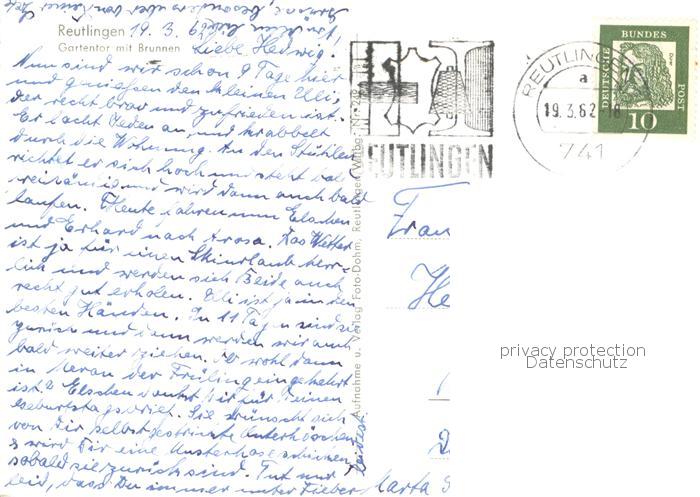 Grüsse, besonders aber von Eurer
Reutlingen 19. 3. 62
Gartentor mit Brunnen
Liebe Hedwig!
Nun sind wir schon 9 Tage hier
und genießen den kleinen Ulli,
der recht brav und zufrieden ist.
Er lacht Jeden an, und krabbelt
durch die Wohnung. An den Stühlen
richtet er sich hoch und steht
und wird dann auch bald
laufen. Heute fahren nun Elschen
und Erhard nach Arosa. Das Wetter
ist ja für einen Skiurlaub herr-
lich und werden sich Beide auch
recht gut erholen. Ulli ist ja in den
besten Händen. In 11 Tagen sind sie
zurück und dann werden wir auch
bald weiter ziehen. Ob wohl dann
in Meran der Frühling eingekehrt
ist? Elschen dankt Dir für Deinen
Geburtstagsbrief. Sie wünscht sich
von Dir selbstgestrickte Unterhöschen
wird Dir eine Musterhose schicken
sobald sie zurück sind. Tut mir
leid, dass Du immer unter Fieber
leidest
Marta
Aufnahme u. Verlag Foto-Dohm, Reutlingen
REUTLINGEN
a
19.3.62-18
741
REUTLINGEN
DEUTSCHE
BUNDES
POST
Dürer
10
Frau
He
privacy protection
Datenschutz